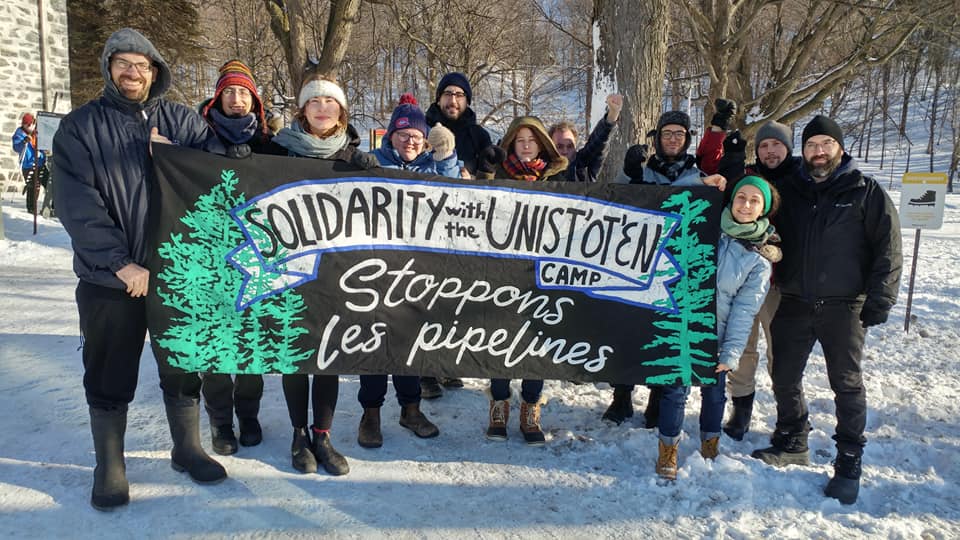 SOLIDARITY with the UNIST'OT'EN
CAMP
Stoppons
les pipelines